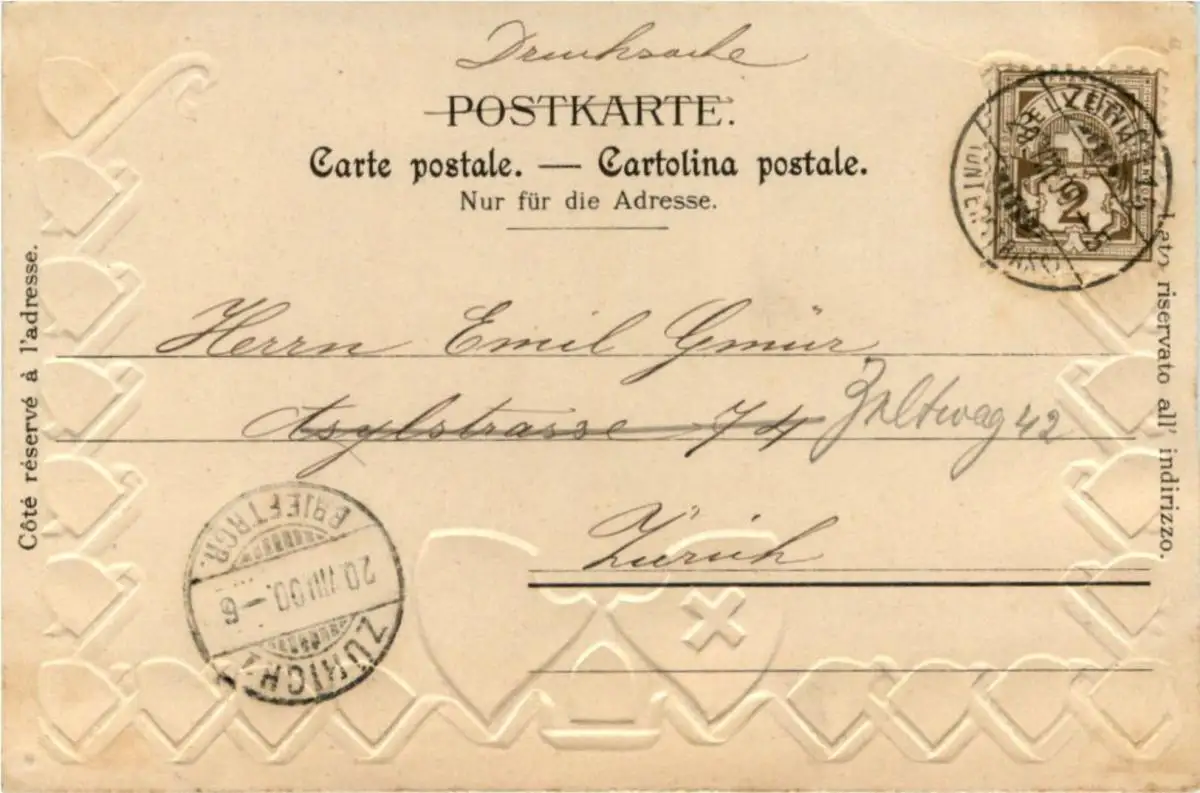 Drucksache
POSTKARTE.
Carte postale. — Cartolina postale.
Nur für die Adresse.
Côté réservé à l'adresse.
Lato riservato all' indirizzo.
2
Herrn Emil Gmür
Asylstrasse 74 Zeltweg 42
Zürich
BRIEFTRGR.
20.VIII.00.–6
ZÜRICH